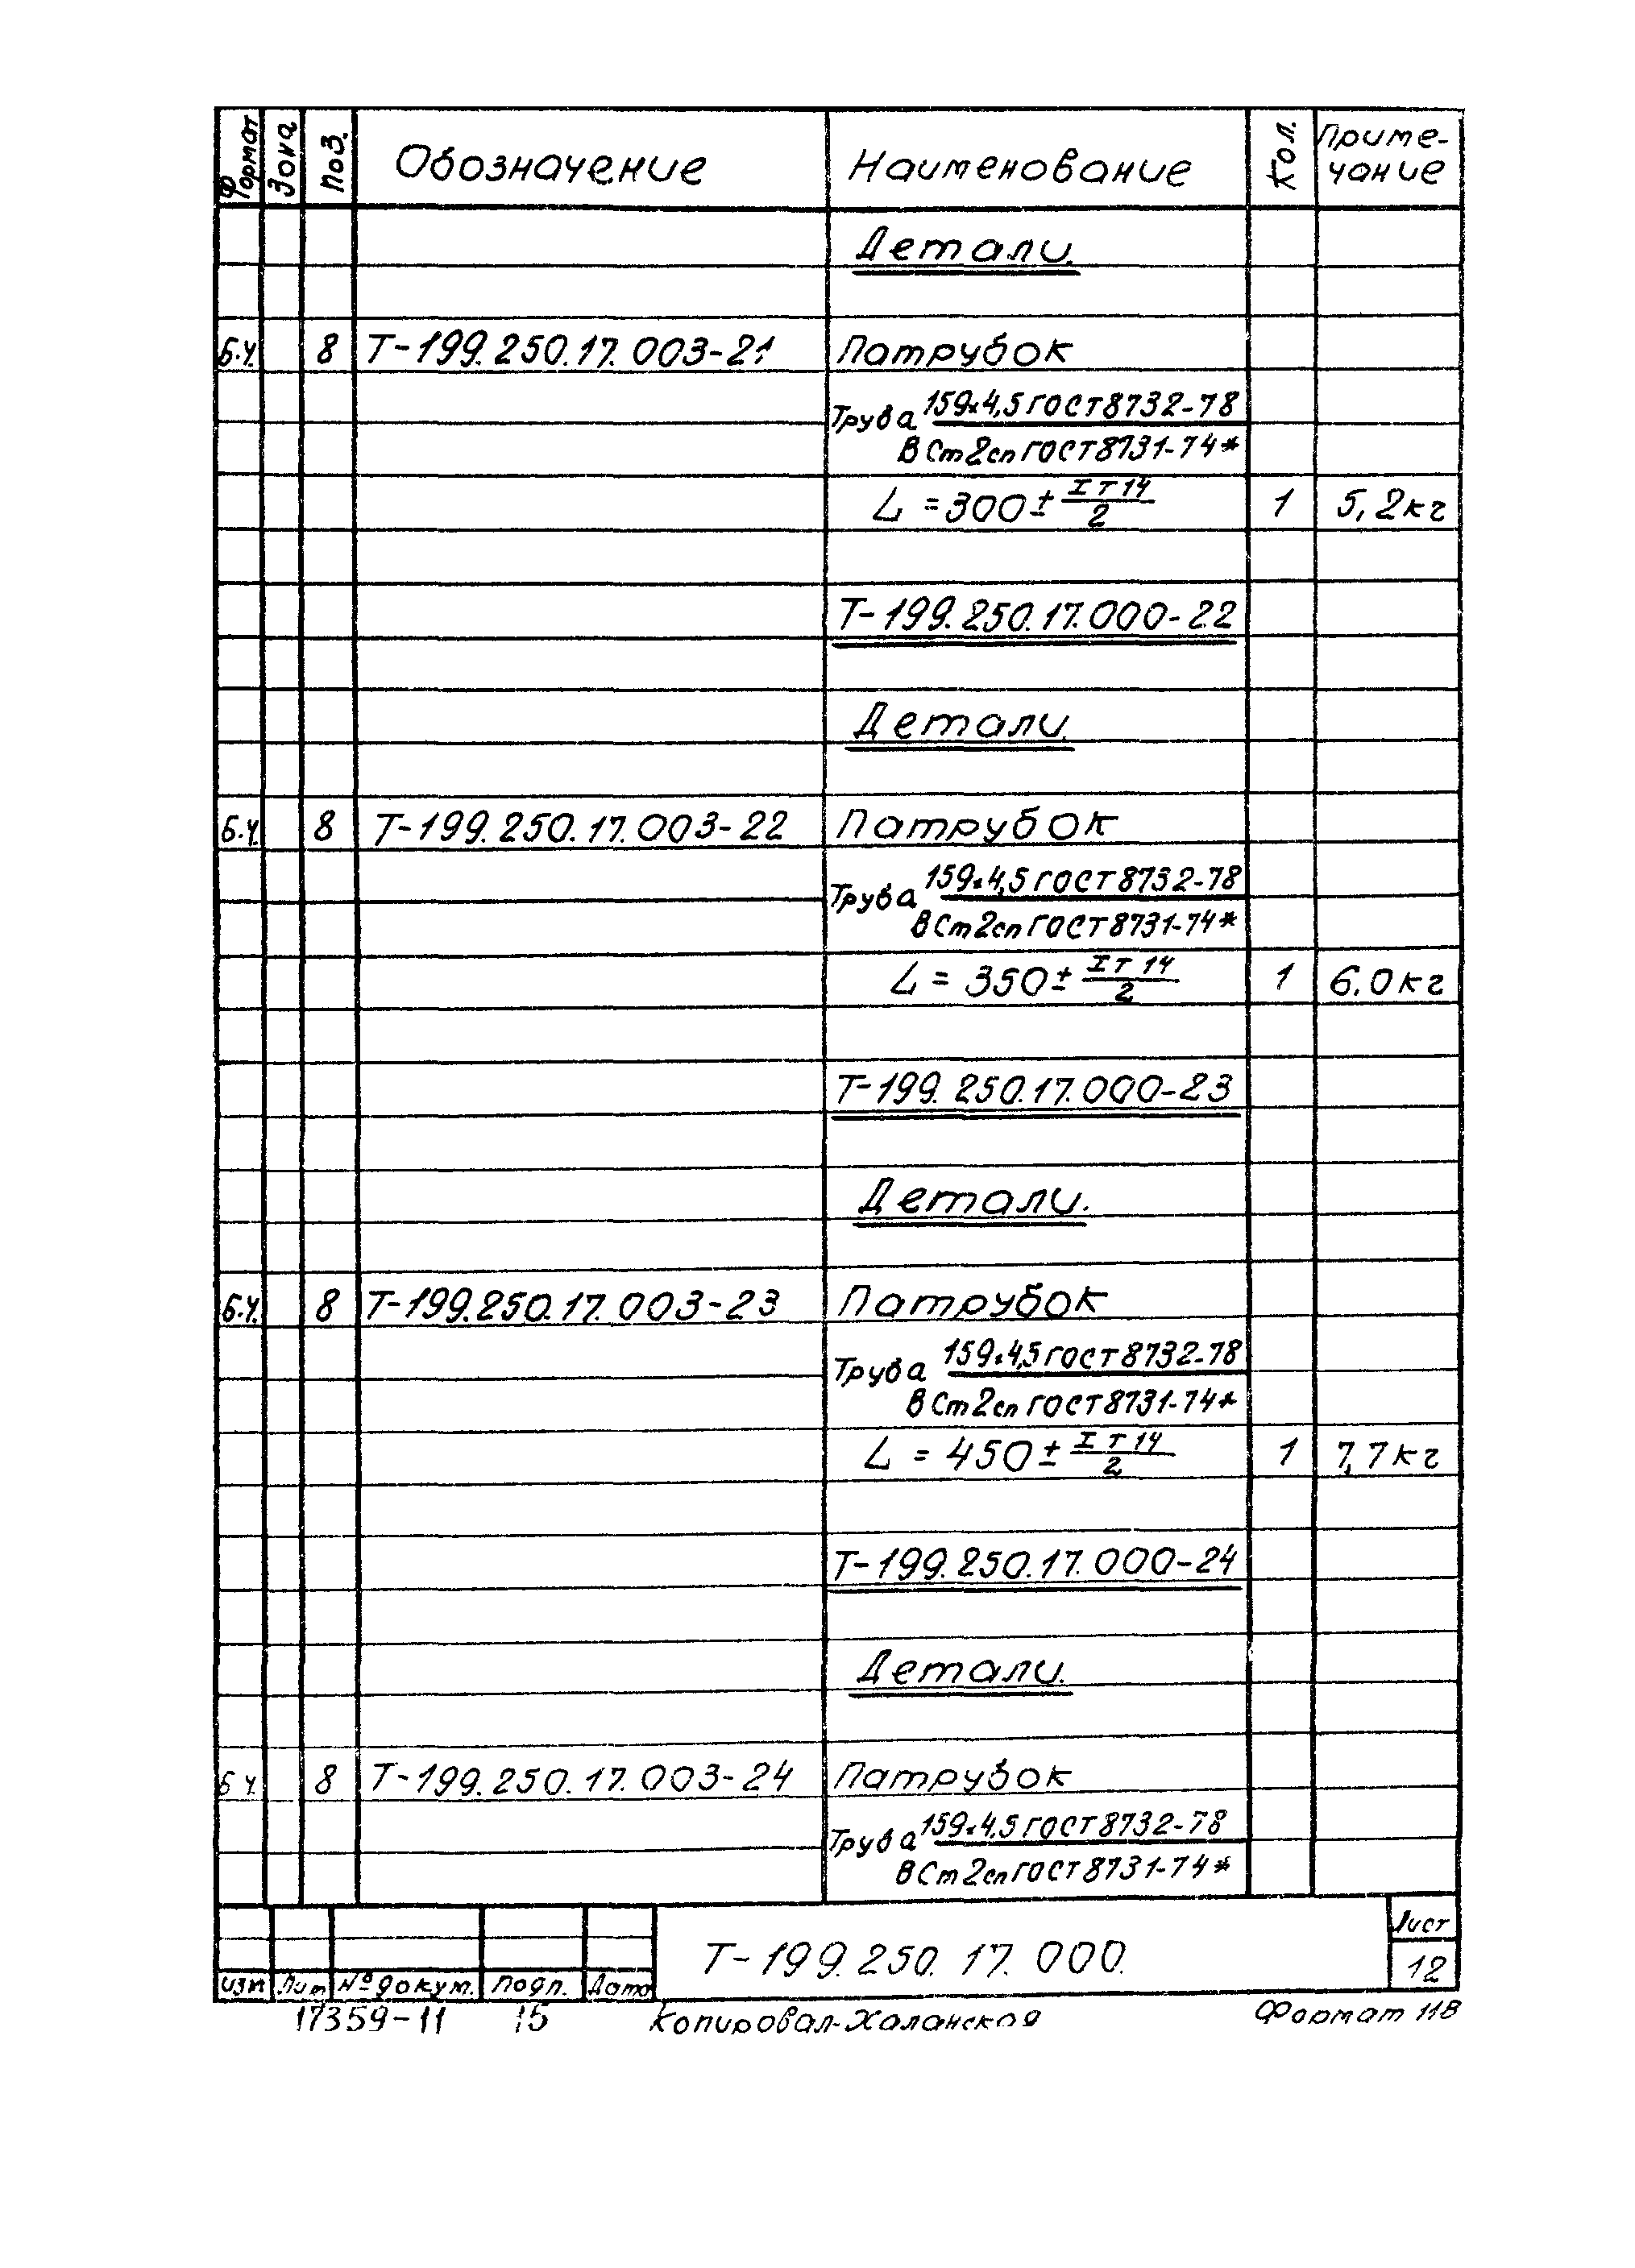 Формат Зона Поз. Обозначение Наименование Кол. Приме-
чание
Детали.
Б.Ч. 8 Т-199.250.17.003-21 Патрубок
Труба 159×4,5 ГОСТ 8732-78
В Ст2сп ГОСТ 8731-74*
L = 300 ± IT14/2 1 5,2 кг
Т-199.250.17.000-22
Детали.
Б.Ч. 8 Т-199.250.17.003-22 Патрубок
Труба 159×4,5 ГОСТ 8732-78
В Ст2сп ГОСТ 8731-74*
L = 350 ± IT14/2 1 6.0 кг
Т-199.250.17.000-23
Детали.
Б.Ч. 8 Т-199.250.17.003-23 Патрубок
Труба 159×4,5 ГОСТ 8732-78
В Ст2сп ГОСТ 8731-74*
L = 450 ± IT14/2 1 7,7 кг
Т-199.250.17.000-24
Детали.
Б Ч. 8 Т-199.250.17.003-24 Патрубок
Труба 159×4,5 ГОСТ 8732-78
В Ст2сп ГОСТ 8731-74*
Изм Лит № докум. Подп. Дата
Т-199.250.17.000.
Лист
12
17359-11 15 Копировал-Халанская Формат 11В